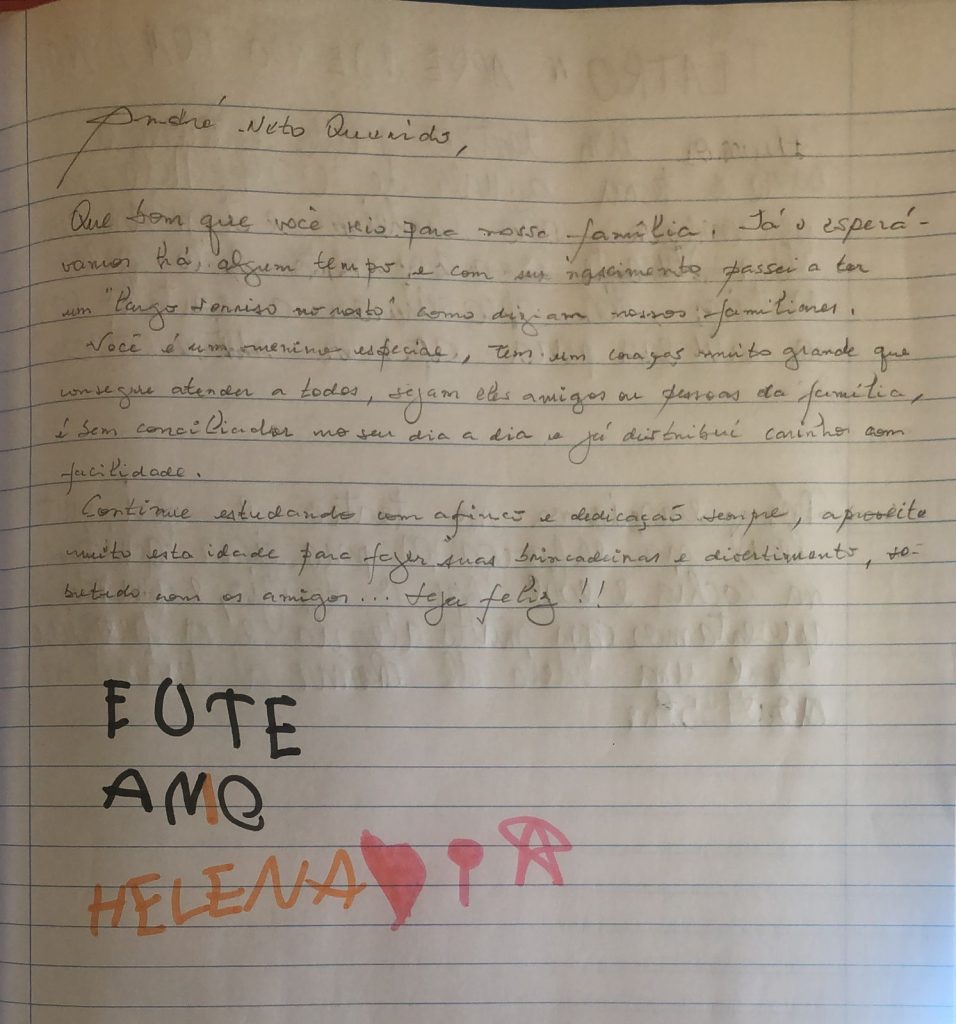 André Neto Querido,
Que bom que você veio para nossa família. Já o esperá-
vamos há algum tempo e com seu nascimento passei a ter
um "largo sorriso no rosto" como diziam nossos familiares.
Você é um menino especial, tem um coração muito grande que
consegue atender a todos, sejam eles amigos ou pessoas da família,
é bem conciliador no seu dia a dia e já distribui carinho com
facilidade.
Continue estudando com afinco e dedicação sempre, aproveite
muito esta idade para fazer suas brincadeiras e divertimento, so-
bretudo com os amigos... Seja feliz!!
EU TE
AMO
HELENA